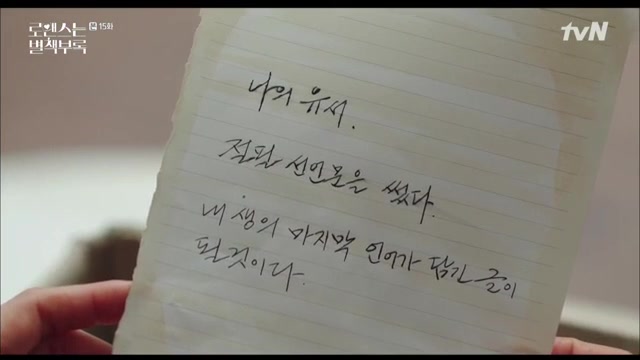 로맨스는
별책부록
15화
tvN
나의 유서.
절필 선언문을 썼다.
내 생의 마지막 언어가 담긴 글이
될것이다.